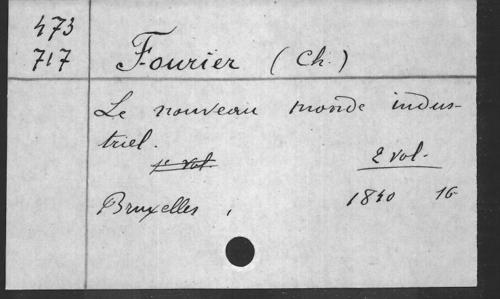 473
717
Fourier (Ch.)
Le nouveau monde indus-
triel.
1r vol.
2 vol.
Bruxelles, 1840 16